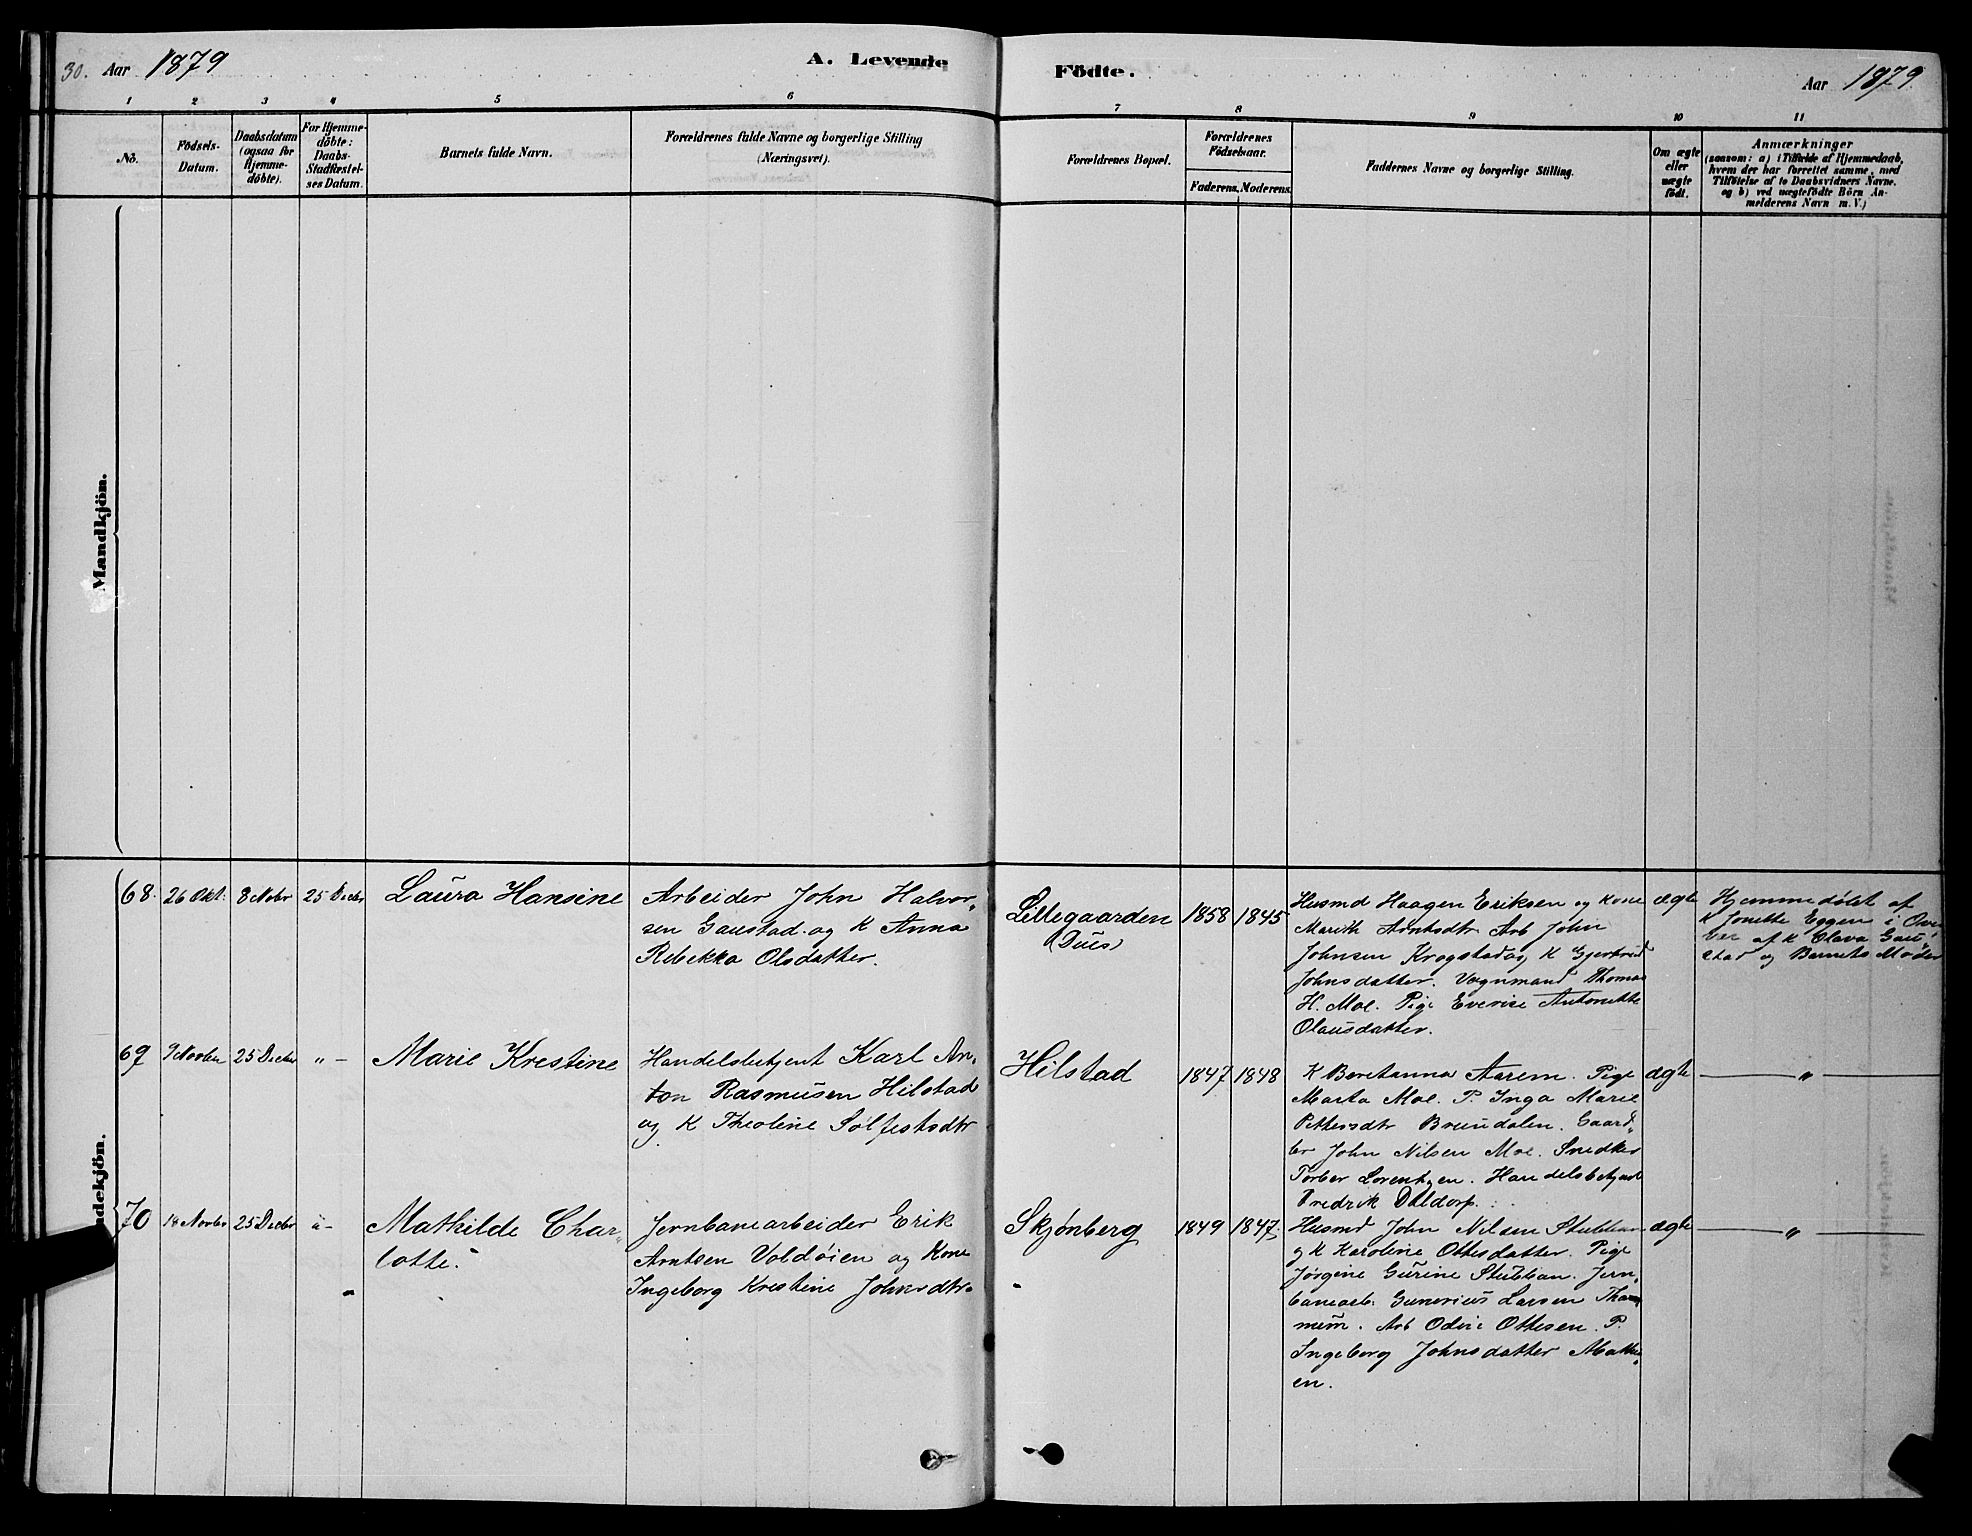 30. Aar 1879
A. Levende
Födte.
Aar 1879.
1 2 3 4 5 6 7 8 9 10 11
No.
Födsels-
Datum.
Daabsdatum
(ogsaa for
Hjemme-
döbte).
For Hjemme-
döbte:
Daabs-
Stadfæstel-
ses Datum.
Barnets fulde Navn.
Forældrenes fulde Navne og borgerlige Stilling
(Næringsvei).
Forældrenes Bopæl.
Forældrenes
Födselsaar.
Faderens. Moderens.
Faddernes Navne og borgerlige Stilling.
Om ægte
eller
uægte
födt.
Anmærkninger
(saasom: a) i Tilfælde af Hjemmedaab,
hvem der har forrettet samme, med
Tilföielse af to Daabsvidners Navne.
og b) ved uægtefödte Börn An-
melderens Navn m. V.)
Mandkjön.
68. 26 Okt. 8 Novbr 25 Decbr
Laura Hansine
Arbeider John Halvor-
sen Gaustad og K Anna
Rebekka Olsdatter.
Lillegaarden
(Duès)
1858 1845
Husmd Haagen Eriksen og Kone
Marith Arntsdtr. Arb John
Johnsen Krogstad og K Gjertrud
Johnsdatter. Vognmand Thomas
H. Moe. Pige Everise Antonette
Olausdatter.
ægte
Hjemmedøbt af
K Jonette Eggen i Over
vær af K Olava Gau-
stad og Barnets Moder
69 25 Decbr "-
Marie Krestine
Handelsbetjent Karl An-
ton Rasmusen Hilstad
og K Theoline Solfestsdtr
Hilstad
1847 1848
K Beretanna Aarem. Pige
Marta Moe. P. Inga Marie
Pettersdtr Bruudalen. Gaard-
br John Nilsen Moe. Snedker
Torber Lorentzen. Handelsbetjent
Fredrik Daldorp.
ægte
"
dekjön.
70 14 Novbr 25 Decbr "-
Mathilde Char-
lotte.
Jernbanearbeider Erik
Arntsen Voldøien og Kone
Ingeborg Krestine Johnsdtr.
Skjønberg
1849 1847.
Husmd John Nilsen Stubban
og K Karoline Ottesdatter. Pige
Jørgine Gurine Stubban. Jern-
banearb. Gunerius Larsen
Arb Odin Ottesen. P.
Ingeborg Johnsdatter
en.
ægte
"